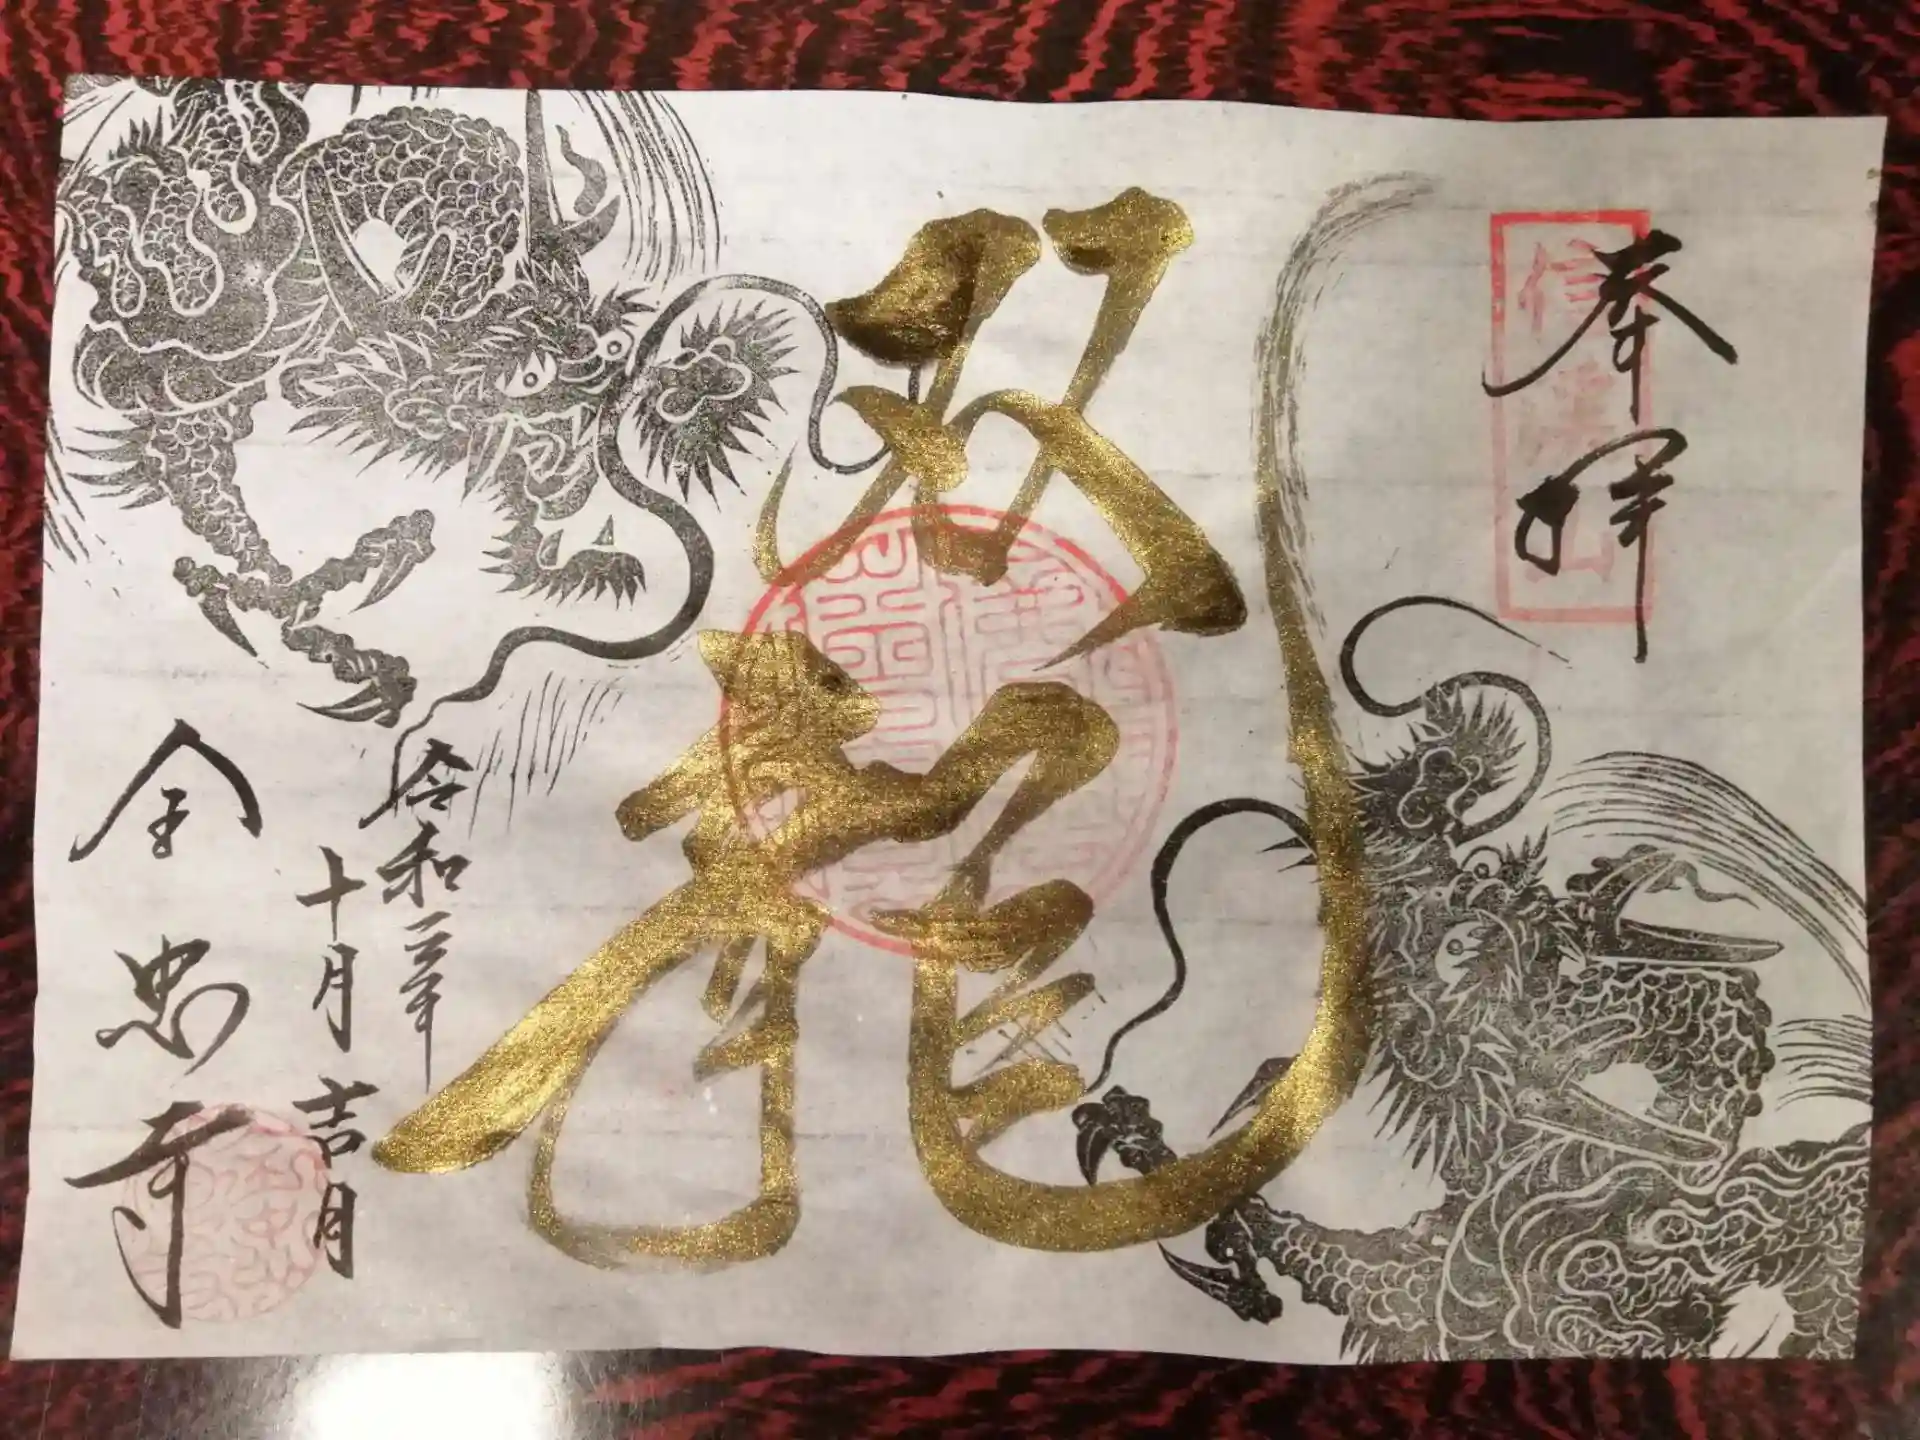 奉拝
双龍
令和二年
十月吉月
全忠寺